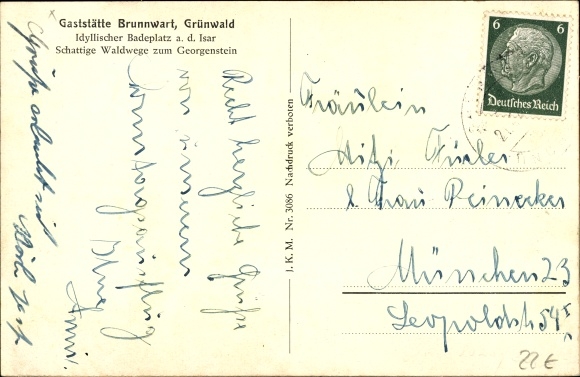 Gaststätte Brunnwart, Grünwald
Idyllischer Badeplatz a. d. Isar
Schattige Waldwege zum Georgenstein
Recht herzliche Grüße
von unserem
Sonntagsausflug
Ihre
Anni
Grüße erlaubt sich
J. K. M. Nr. 3086 Nachdruck verboten
6 6
Deutsches Reich
Fräulein
Mitzi
b. Frau Reinecker
München 23
Leopoldstr. 54
22 €